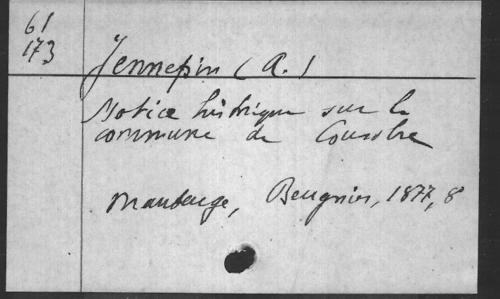 61
173
Jennepin (A.)
Notice historique sur la
commune de Cousolre
Maubeuge, Beugnies, 1877, 8°